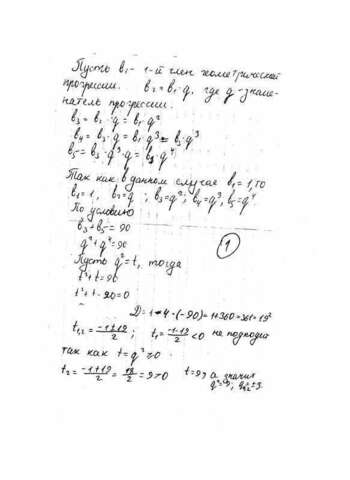 Пусть b₁ - 1-й член геометрической
прогрессии. b₂ = b₁·q, где q - знаме-
натель прогрессии.
b₃ = b₂·q = b₁·q²
b₄ = b₃·q = b₁·q³ = b₁·q³
b₅ = b₁·q³·q = b₁·q⁴
Так как в данном случае b₁ = 1, то
b₁ = 1, b₂ = q; b₃ = q²; b₄ = q³, b₅ = q⁴
По условию
b₃ + b₅ = 90
q² + q⁴ = 90
1
Пусть q² = t, тогда
t² + t = 90
t² + t - 90 = 0
D = 1 - 4·(-90) = 1+360 = 361 = 19²
t₁,₂ = (-1±19)/2; t₁ = (-1-19)/2 < 0 не подходит
так как t = q² ≥ 0.
t₂ = (-1+19)/2 = 18/2 = 9 > 0 t = 9, а значит
q² = 9; q₁,₂ = ±3.